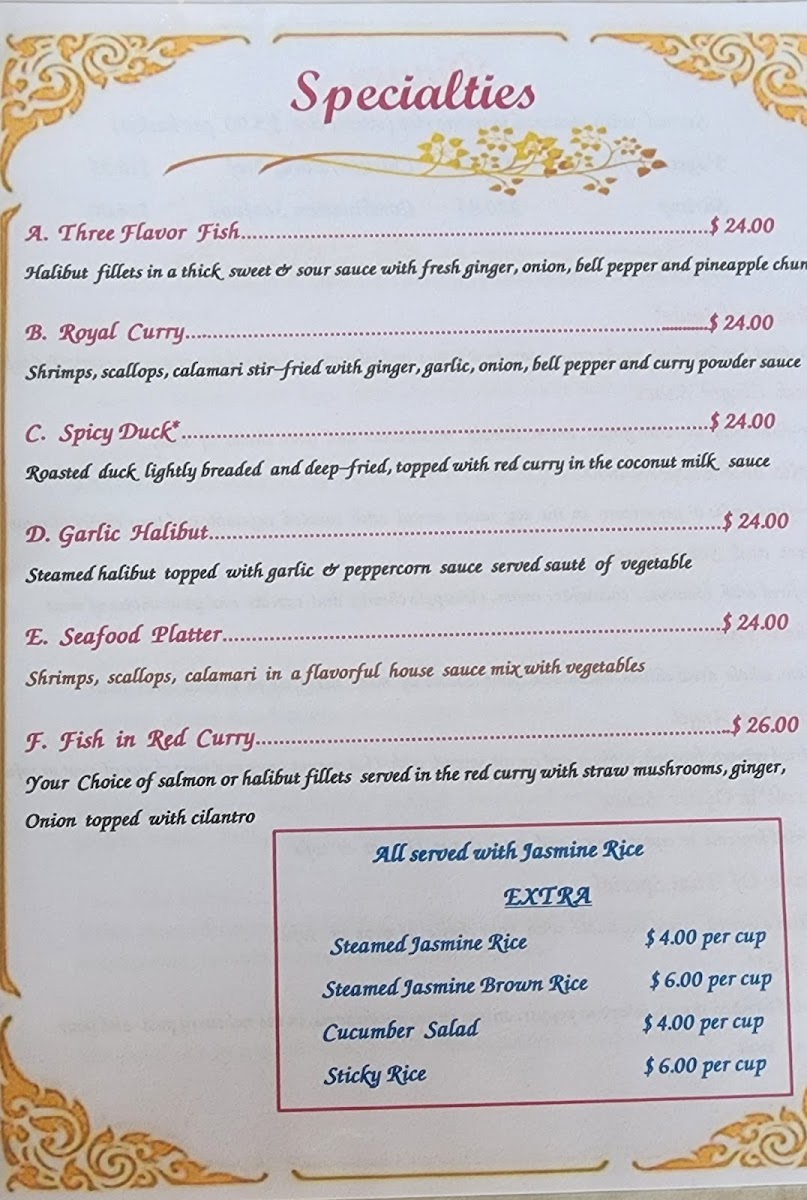 Specialties
A. Three Flavor Fish..........$ 24.00
Halibut fillets in a thick sweet & sour sauce with fresh ginger, onion, bell pepper and pineapple chun
B. Royal Curry..........$ 24.00
Shrimps, scallops, calamari stir-fried with ginger, garlic, onion, bell pepper and curry powder sauce
C. Spicy Duck*..........$ 24.00
Roasted duck lightly breaded and deep-fried, topped with red curry in the coconut milk sauce
D. Garlic Halibut..........$ 24.00
Steamed halibut topped with garlic & peppercorn sauce served sauté of vegetable
E. Seafood Platter..........$ 24.00
Shrimps, scallops, calamari in a flavorful house sauce mix with vegetables
F. Fish in Red Curry..........$ 26.00
Your Choice of salmon or halibut fillets served in the red curry with straw mushrooms, ginger,
Onion topped with cilantro
All served with Jasmine Rice
EXTRA
Steamed Jasmine Rice $ 4.00 per cup
Steamed Jasmine Brown Rice $ 6.00 per cup
Cucumber Salad $ 4.00 per cup
Sticky Rice $ 6.00 per cup